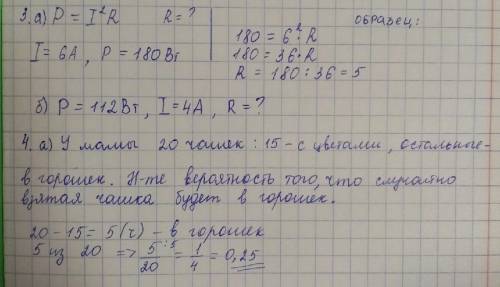 3. а) P = I²R   R = ?   ОБРАЗЕЦ:
I = 6А, P = 180Вт
180 = 6²·R
180 = 36·R
R = 180 : 36 = 5
б) P = 112Вт, I = 4А, R = ?
4. а) У мамы 20 чашек : 15 - с цветами, остальные -
в горошек. Н-те вероятность того, что случайно
взятая чашка будет в горошек.
20 - 15 = 5 (ч) - в горошек
5 из 20 => 5/20 :5 = 1/4 = 0,25